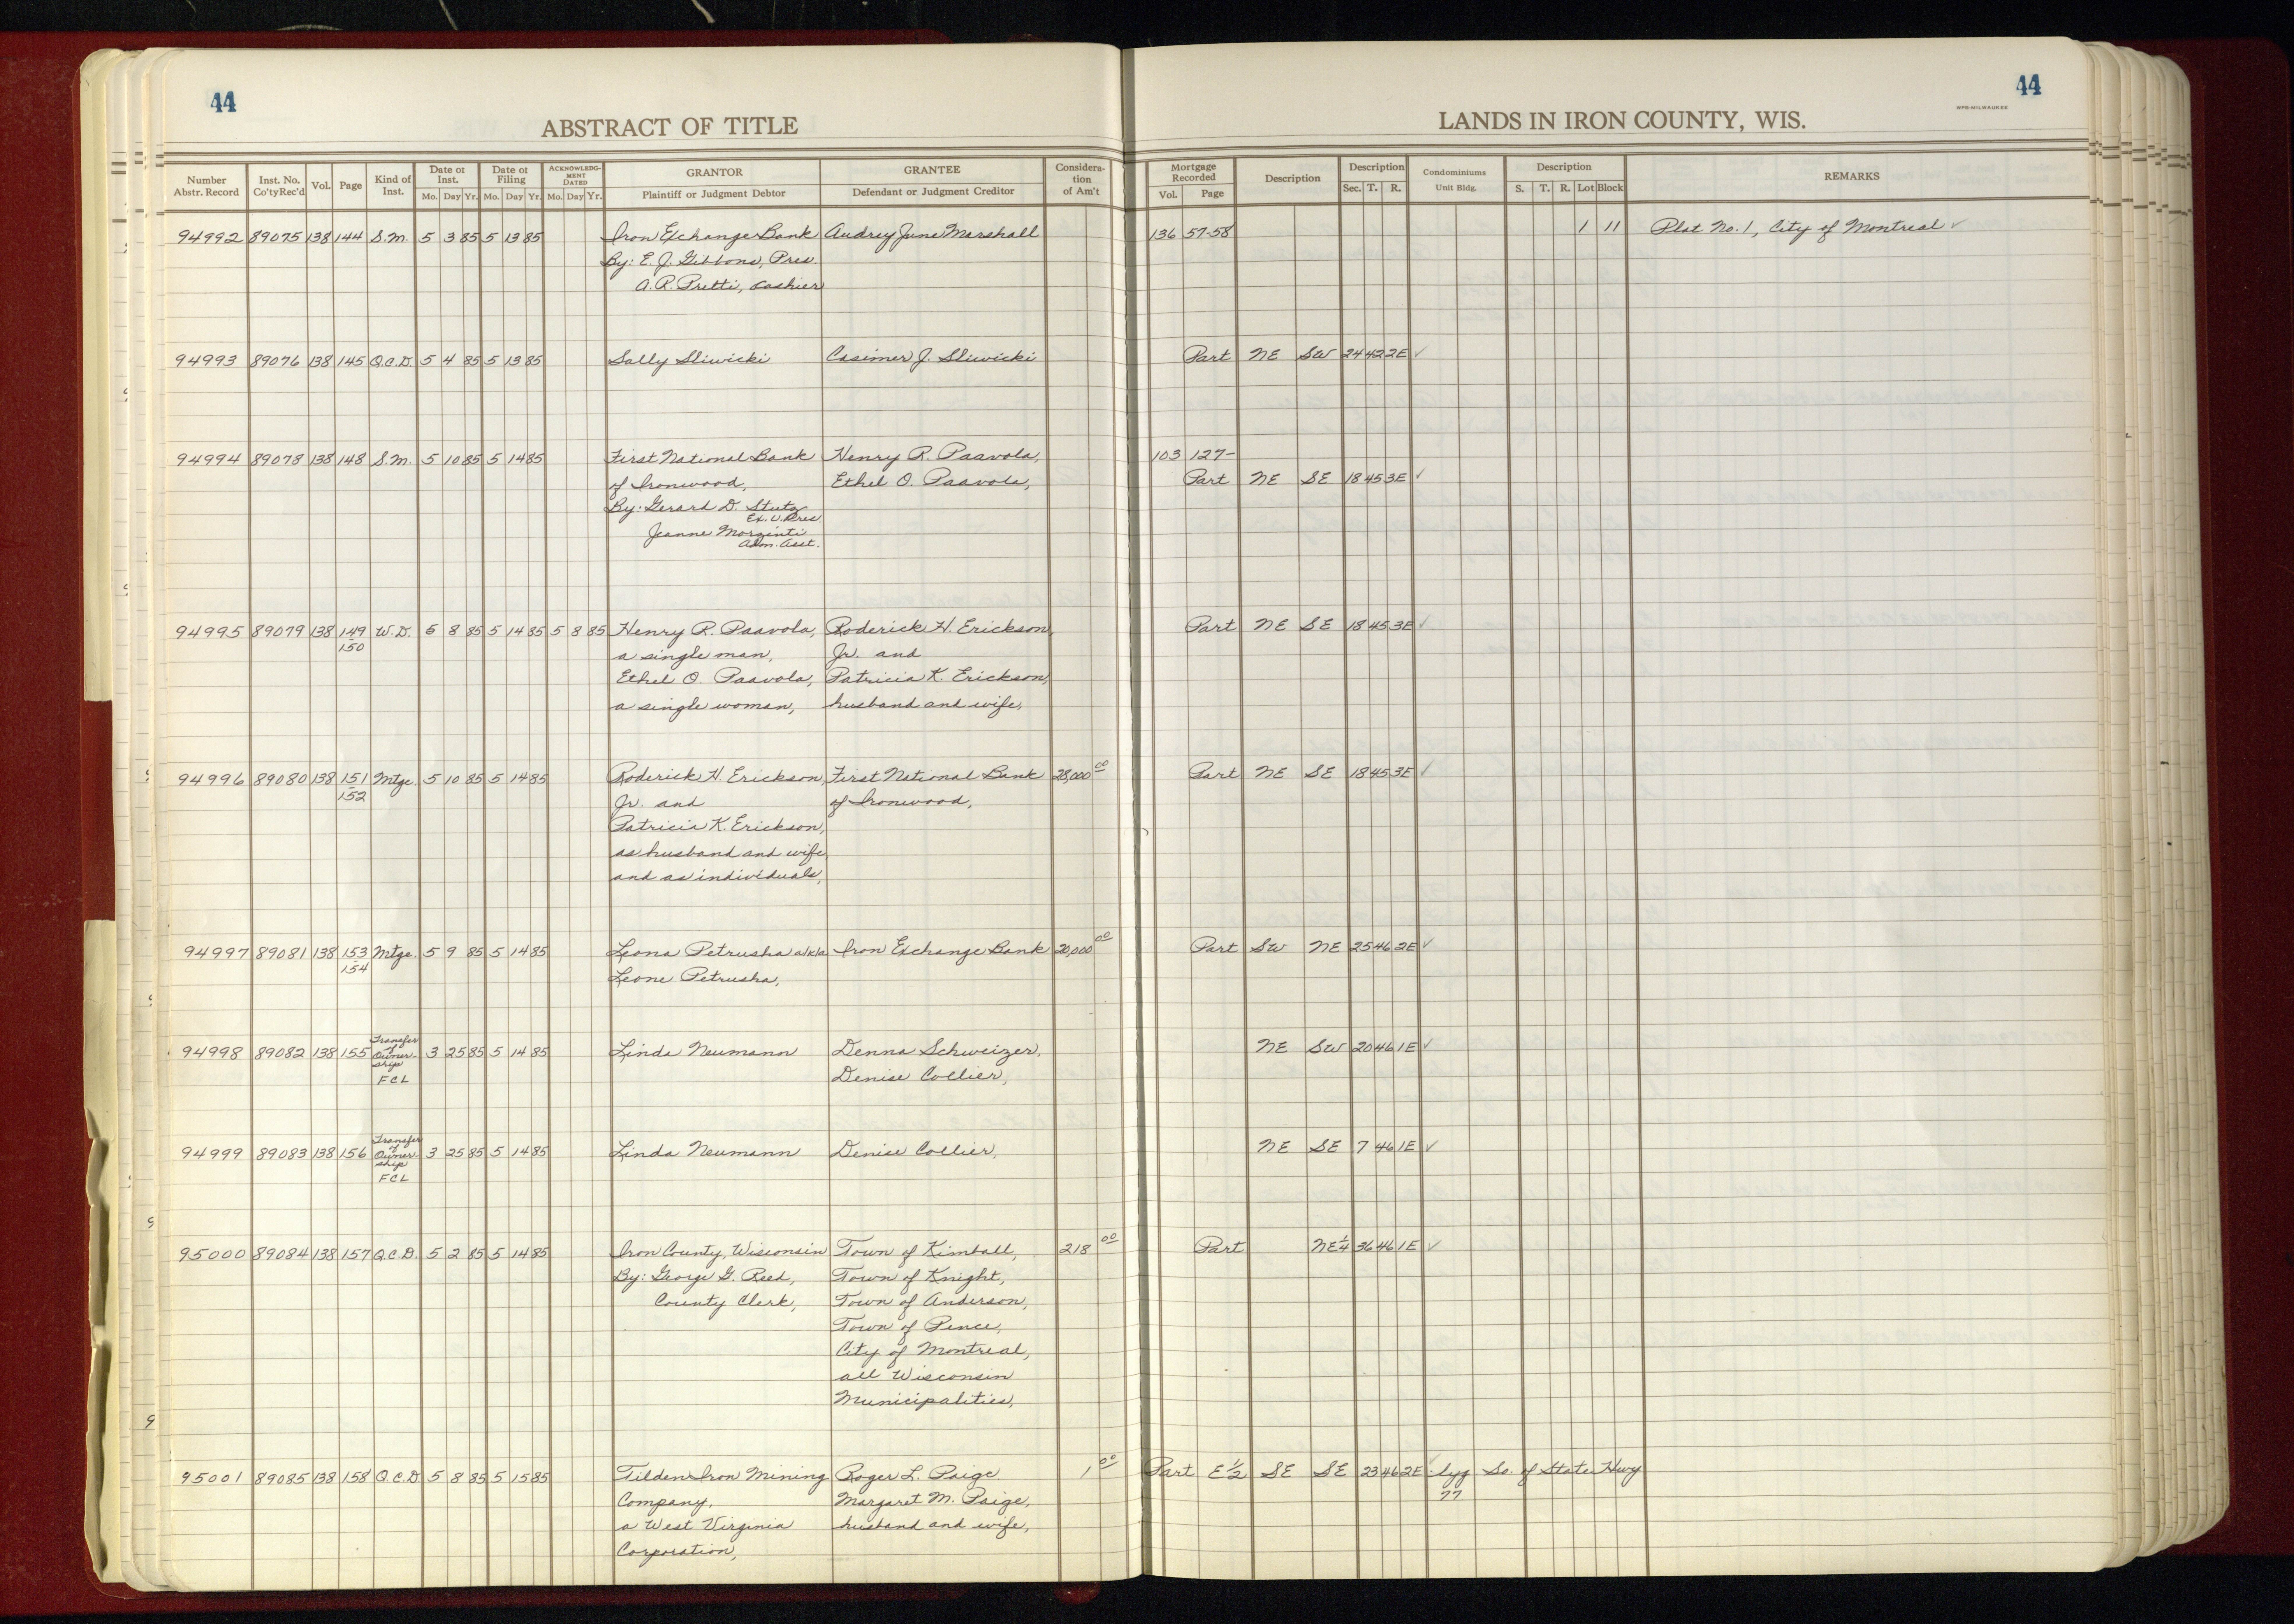 44
ABSTRACT OF TITLE
Number Abstr. Record | Inst. No. Co'ty Rec'd | Vol. | Page | Kind of Inst. | Date of Inst. Mo. Day Yr. | Date of Filing Mo. Day Yr. | ACKNOWLEDGMENT DATED Mo. Day Yr. | GRANTOR Plaintiff or Judgment Debtor | GRANTEE Defendant or Judgment Creditor | Consideration of Am't
44
WPB-MILWAUKEE
LANDS IN IRON COUNTY, WIS.
Mortgage Recorded Vol. Page | Description | Description Sec. T. R. | Condominiums Unit Bldg. | Description S. T. R. Lot Block | REMARKS
94992 89075 138 144 S.M. 5 3 85 5 13 85 Iron Exchange Bank Audrey June Marshall 136 57-58 1 11 Plat No. 1, City of Montreal ✓
By: E. J. Gibbons, Pres.
A. R. Pretti, Cashier
94993 89076 138 145 Q.C.D. 5 4 85 5 13 85 Sally Sliwicki Casimer J. Sliwicki Part NE SW 24 42 2E ✓
94994 89078 138 148 S.M. 5 10 85 5 14 85 First National Bank Henry R. Paavola, 103 127-
of Ironwood, Ethel O. Paavola, Part NE SE 18 45 3E ✓
By: Gerard D. Stutz
Ex. V. Pres.
Jeanne Morzenti
Adm. Asst.
94995 89079 138 149 W.D. 6 8 85 5 14 85 5 8 85 Henry R. Paavola, Roderick H. Erickson, Part NE SE 18 45 3E ✓
150 a single man, Jr. and
Ethel O. Paavola, Patricia K. Erickson,
a single woman, husband and wife,
94996 89080 138 151 Mtge. 5 10 85 5 14 85 Roderick H. Erickson, First National Bank 28,000 00 Part NE SE 18 45 3E ✓
152 Jr. and of Ironwood,
Patricia K. Erickson,
as husband and wife
and as individuals,
94997 89081 138 153 Mtge. 5 9 85 5 14 85 Leona Petrusha a/k/a Iron Exchange Bank 20,000 00 Part SW NE 25 46 2E ✓
154 Leone Petrusha,
94998 89082 138 155 Transfer of Ownership 3 25 85 5 14 85 Linda Neumann Denna Schweizer, NE SW 20 46 1E ✓
FCL Denise Collier,
94999 89083 138 156 Transfer of Ownership 3 25 85 5 14 85 Linda Neumann Denise Collier, NE SE 7 46 1E ✓
FCL
95000 89084 138 157 Q.C.D. 5 2 85 5 14 85 Iron County, Wisconsin Town of Kimball, 218 00 Part NE¼ 36 46 1E ✓
By: George G. Reed, Town of Knight,
County Clerk, Town of Anderson,
Town of Pence,
City of Montreal,
all Wisconsin
Municipalities,
95001 89085 138 158 Q.C.D 5 8 85 5 15 85 Tilden Iron Mining Roger L. Paige 1 00 Part E½ SE SE 23 46 2E lyg So. of State Hwy
Company, Margaret M. Paige, 77
a West Virginia husband and wife,
Corporation,